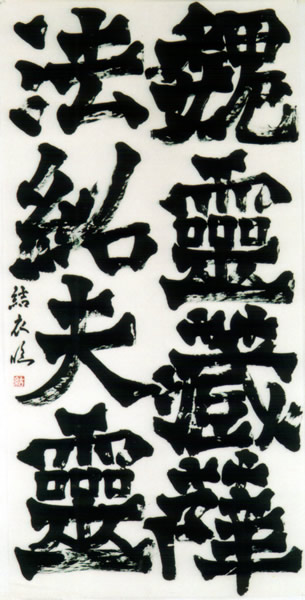 魏靈藏薛
法紹夫靈
結衣臨